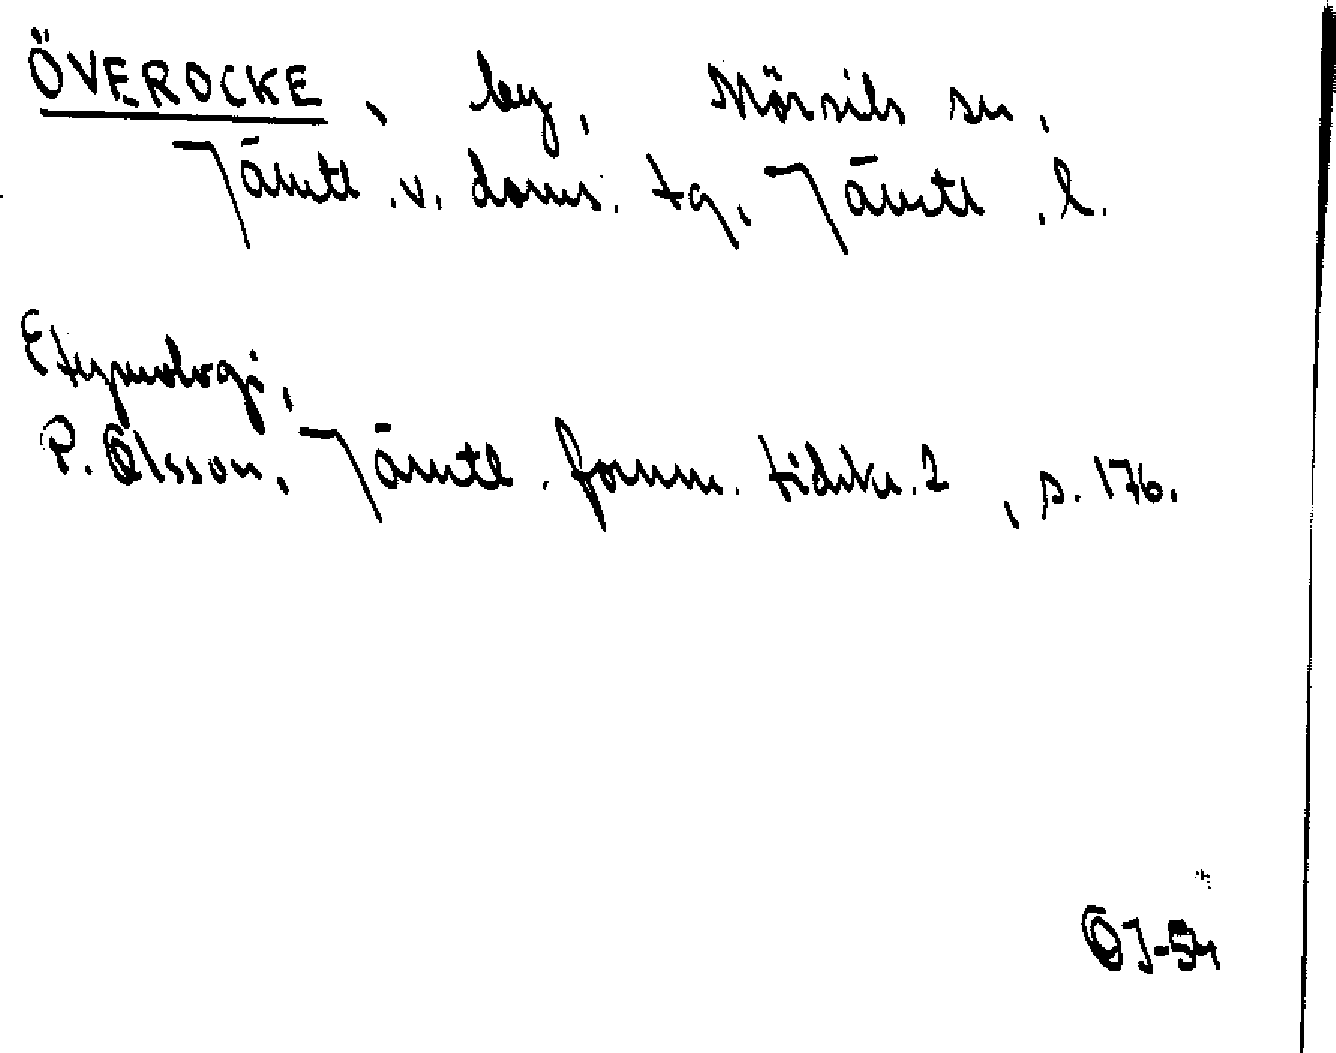 ÖVEROCKE, by, Mörsils sn,
Jämtl. v. doms. tg, Jämtl. l.
Etymologi,
P. Olsson, Jämtl. fornm. tidskr. 2, s. 176.
OJ-54